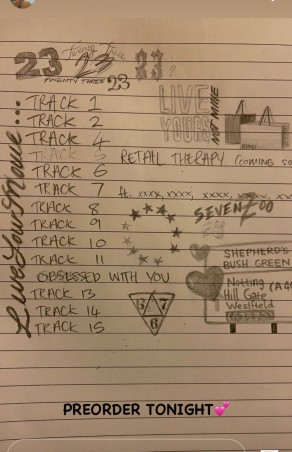 Twenty Three
23 23 23
TWENTY THREE 23
LIVE YOURS NOT MINE
Live Yours Not Mine...
TRACK 1
TRACK 2
TRACK 4
TRACK 5 RETAIL THERAPY (COMING SO
TRACK 6
TRACK 7 ft. xxxx, xxxx, xxxx, xx
TRACK 8
SEVEN
TRACK 9
TRACK 10
TRACK 11
SHEPHERD'S
BUSH GREEN
OBSESSED WITH YOU
Notting
Hill Gate
Westfield
TRACK 13
TRACK 14
TRACK 15
5 7
6
PREORDER TONIGHT💕